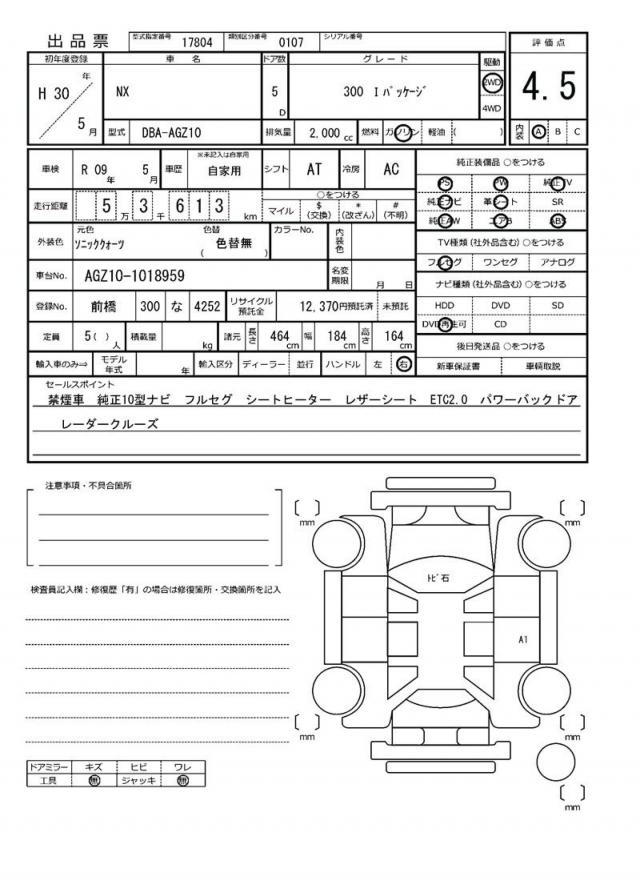 出品票 型式指定番号 17804 類別区分番号 0107 シリアル番号
初年度登録 車名 ドア数 グレード 駆動 評価点
H 30 年 5 月 NX 5 D 300 Iパッケージ 2WD 4WD 4.5
型式 DBA-AGZ10 排気量 2,000 cc 燃料 ガソリン 軽油 ( ) 内装 A B C
車検 R 09 年 5 月 車歴 ※未記入は自家用 自家用 シフト AT 冷房 AC 純正装備品 ○をつける
PS PW 純正TV
走行距離 5 万 3 千 6 1 3 km ○をつける マイル $ (交換) * (改ざん) # (不明) 純正ナビ 革シート SR
純正AW エアB ABS
外装色 元色 ソニッククォーツ 色替 ( 色替無 ) カラーNo. 内装色 TV種類(社外品含む)○をつける
フルセグ ワンセグ アナログ
車台No. AGZ10-1018959 名変期限 月 日 ナビ種類(社外品含む)○をつける
登録No. 前橋 300 な 4252 リサイクル預託金 12,370円預託済 未預託 HDD DVD SD
DVD再生可 CD
定員 5( ) 人 積載量 kg 諸元 長さ 464 cm 幅 184 cm 高さ 164 cm 後日発送品 ○をつける
輸入車のみ⇒ モデル年式 年 輸入区分 ディーラー 並行 ハンドル 左 右 新車保証書 車輌取説
セールスポイント
禁煙車 純正10型ナビ フルセグ シートヒーター レザーシート ETC2.0 パワーバックドア
レーダークルーズ
注意事項・不具合箇所
mm mm
検査員記入欄:修復歴「有」の場合は修復箇所・交換箇所を記入
トビ石
A1
mm mm
ドアミラー キズ ヒビ ワレ
工具 無 ジャッキ 無
mm